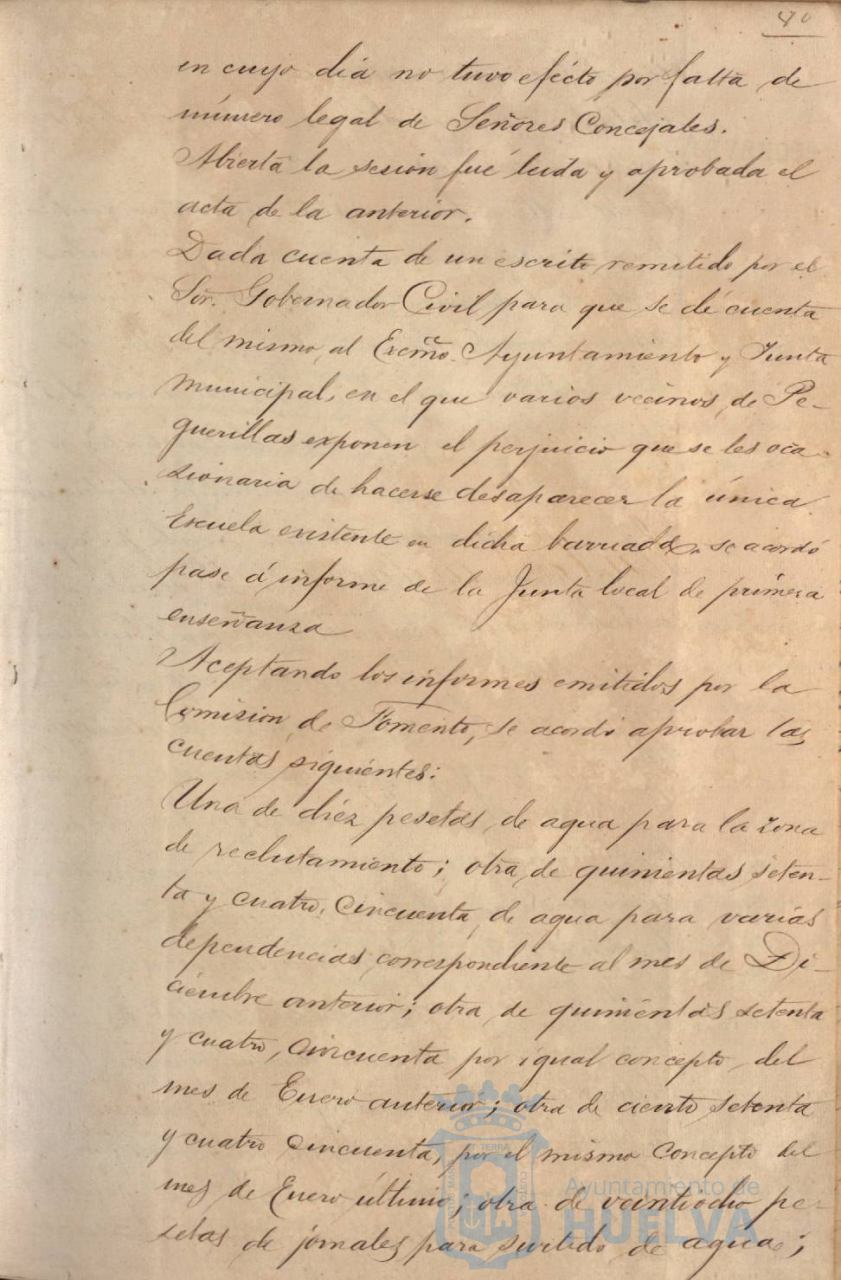 en cuyo dia no tuvo efécto por falta de
número legal de Señores Concejales.
Abierta la sesion fué leida y aprobada el
acta de la anterior.
Dada cuenta de un escrito remitido por el
Sor. Gobernador Civil para que se dé cuenta
del mismo, al Excmo. Ayuntamiento y Junta
municipal, en el que varios vecinos, de Pe-
guerillas exponen el perjuicio que se les oca-
sionaria de hacerse desaparecer la única
Escuela existente en dicha barriada, se acordó
pase á informe de la Junta local de primera
enseñanza
Aceptando los informes emitidos por la
Comision de Fomento, se acordó aprobar las
cuentas siguientes:
Una de diéz pesetas, de agua para la zona
de reclutamiento; otra de quinientas seten-
ta y cuatro, cincuenta, de agua para varias
dependencias correspondiente al mes de Di-
ciembre anterior; otra de quinientas setenta
y cuatro, cincuenta por igual concepto del
mes de Enero anterior; otra de ciento setenta
y cuatro cincuenta, por el mismo concepto del
mes de Enero último; otra de veintiocho pe-
setas de jornales para surtido de agua;
Ayuntamiento de
HUELVA